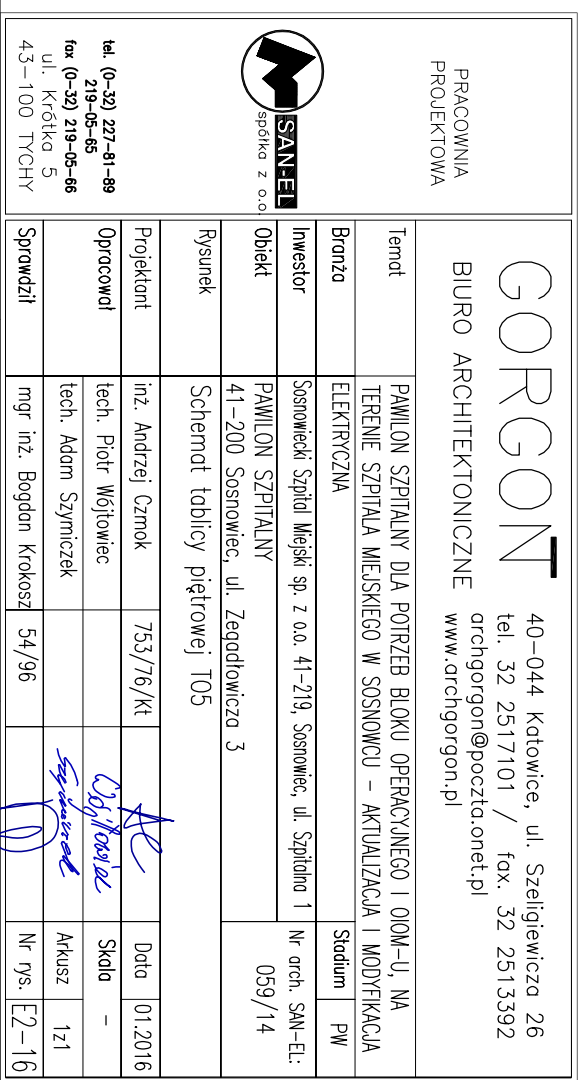 PRACOWNIA
PROJEKTOWA
SAN-EL
spółka z o.o.
tel. (0-32) 227-81-89
219-05-65
fax (0-32) 219-05-66
ul. Krótka 5
43-100 TYCHY
GORGON
BIURO ARCHITEKTONICZNE
40-044 Katowice, ul. Szeligiewicza 26
tel. 32 2517101 / fax. 32 2513392
archgorgon@poczta.onet.pl
www.archgorgon.pl
Temat PAWILON SZPITALNY DLA POTRZEB BLOKU OPERACYJNEGO I OIOM-U, NA
TERENIE SZPITALA MIEJSKIEGO W SOSNOWCU - AKTUALIZACJA I MODYFIKACJA
Branża ELEKTRYCZNA Stadium PW
Inwestor Sosnowiecki Szpital Miejski sp. z o.o. 41-219, Sosnowiec, ul. Szpitalna 1 Nr arch. SAN-EL:
Obiekt PAWILON SZPITALNY 059/14
41-200 Sosnowiec, ul. Zegadłowicza 3
Rysunek Schemat tablicy piętrowej T05
Projektant inż. Andrzej Czmok 753/76/Kt Data 01.2016
Opracował tech. Piotr Wójtowiec Wójtowiec Skala -
tech. Adam Szymiczek Szymiczek Arkusz 1z1
Sprawdził mgr inż. Bogdan Krokosz 54/96 Nr rys. E2-16